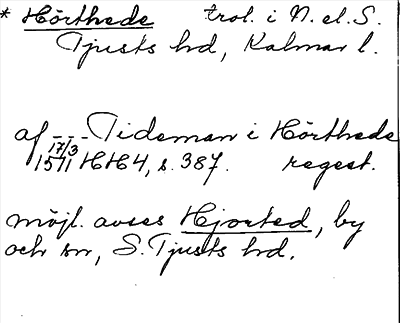 * Hörthede trol. i N. el. S.
Tjusts hd, Kalmar l.
af --- Tideman i Hörthede
17/3 1571 HH4, s. 387. regest.
möjl. avses Hjorted, by
och sn, S. Tjusts hd.